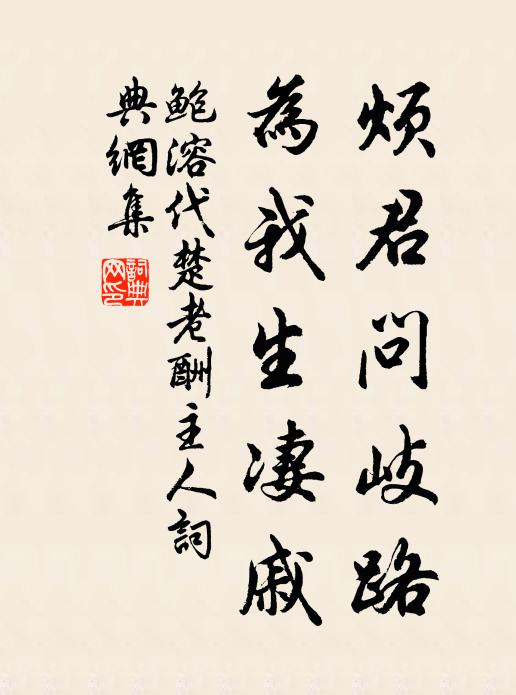 煩君問岐路
為我生淒戚
鮑溶代楚老酬主人詞
典網集
詞典
网印